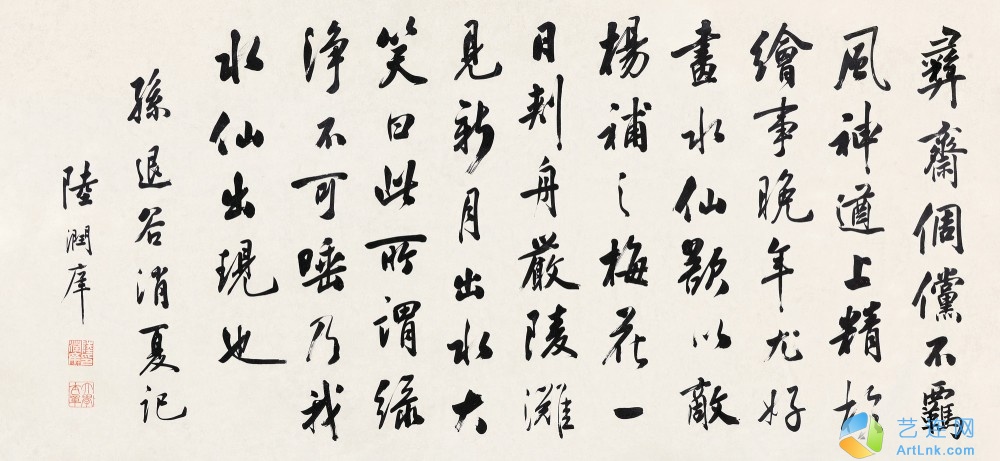 彝齋倜儻不羈
風神遒上精於
繪事晚年尤好
畫水仙欲以敵
楊補之梅花一
日刺舟嚴陵灘
見新月出水大
笑曰此所謂綠
淨不可唾乃我
水仙出現也
孫退谷消夏記
陸潤庠
艺连网
ArtLnk.com